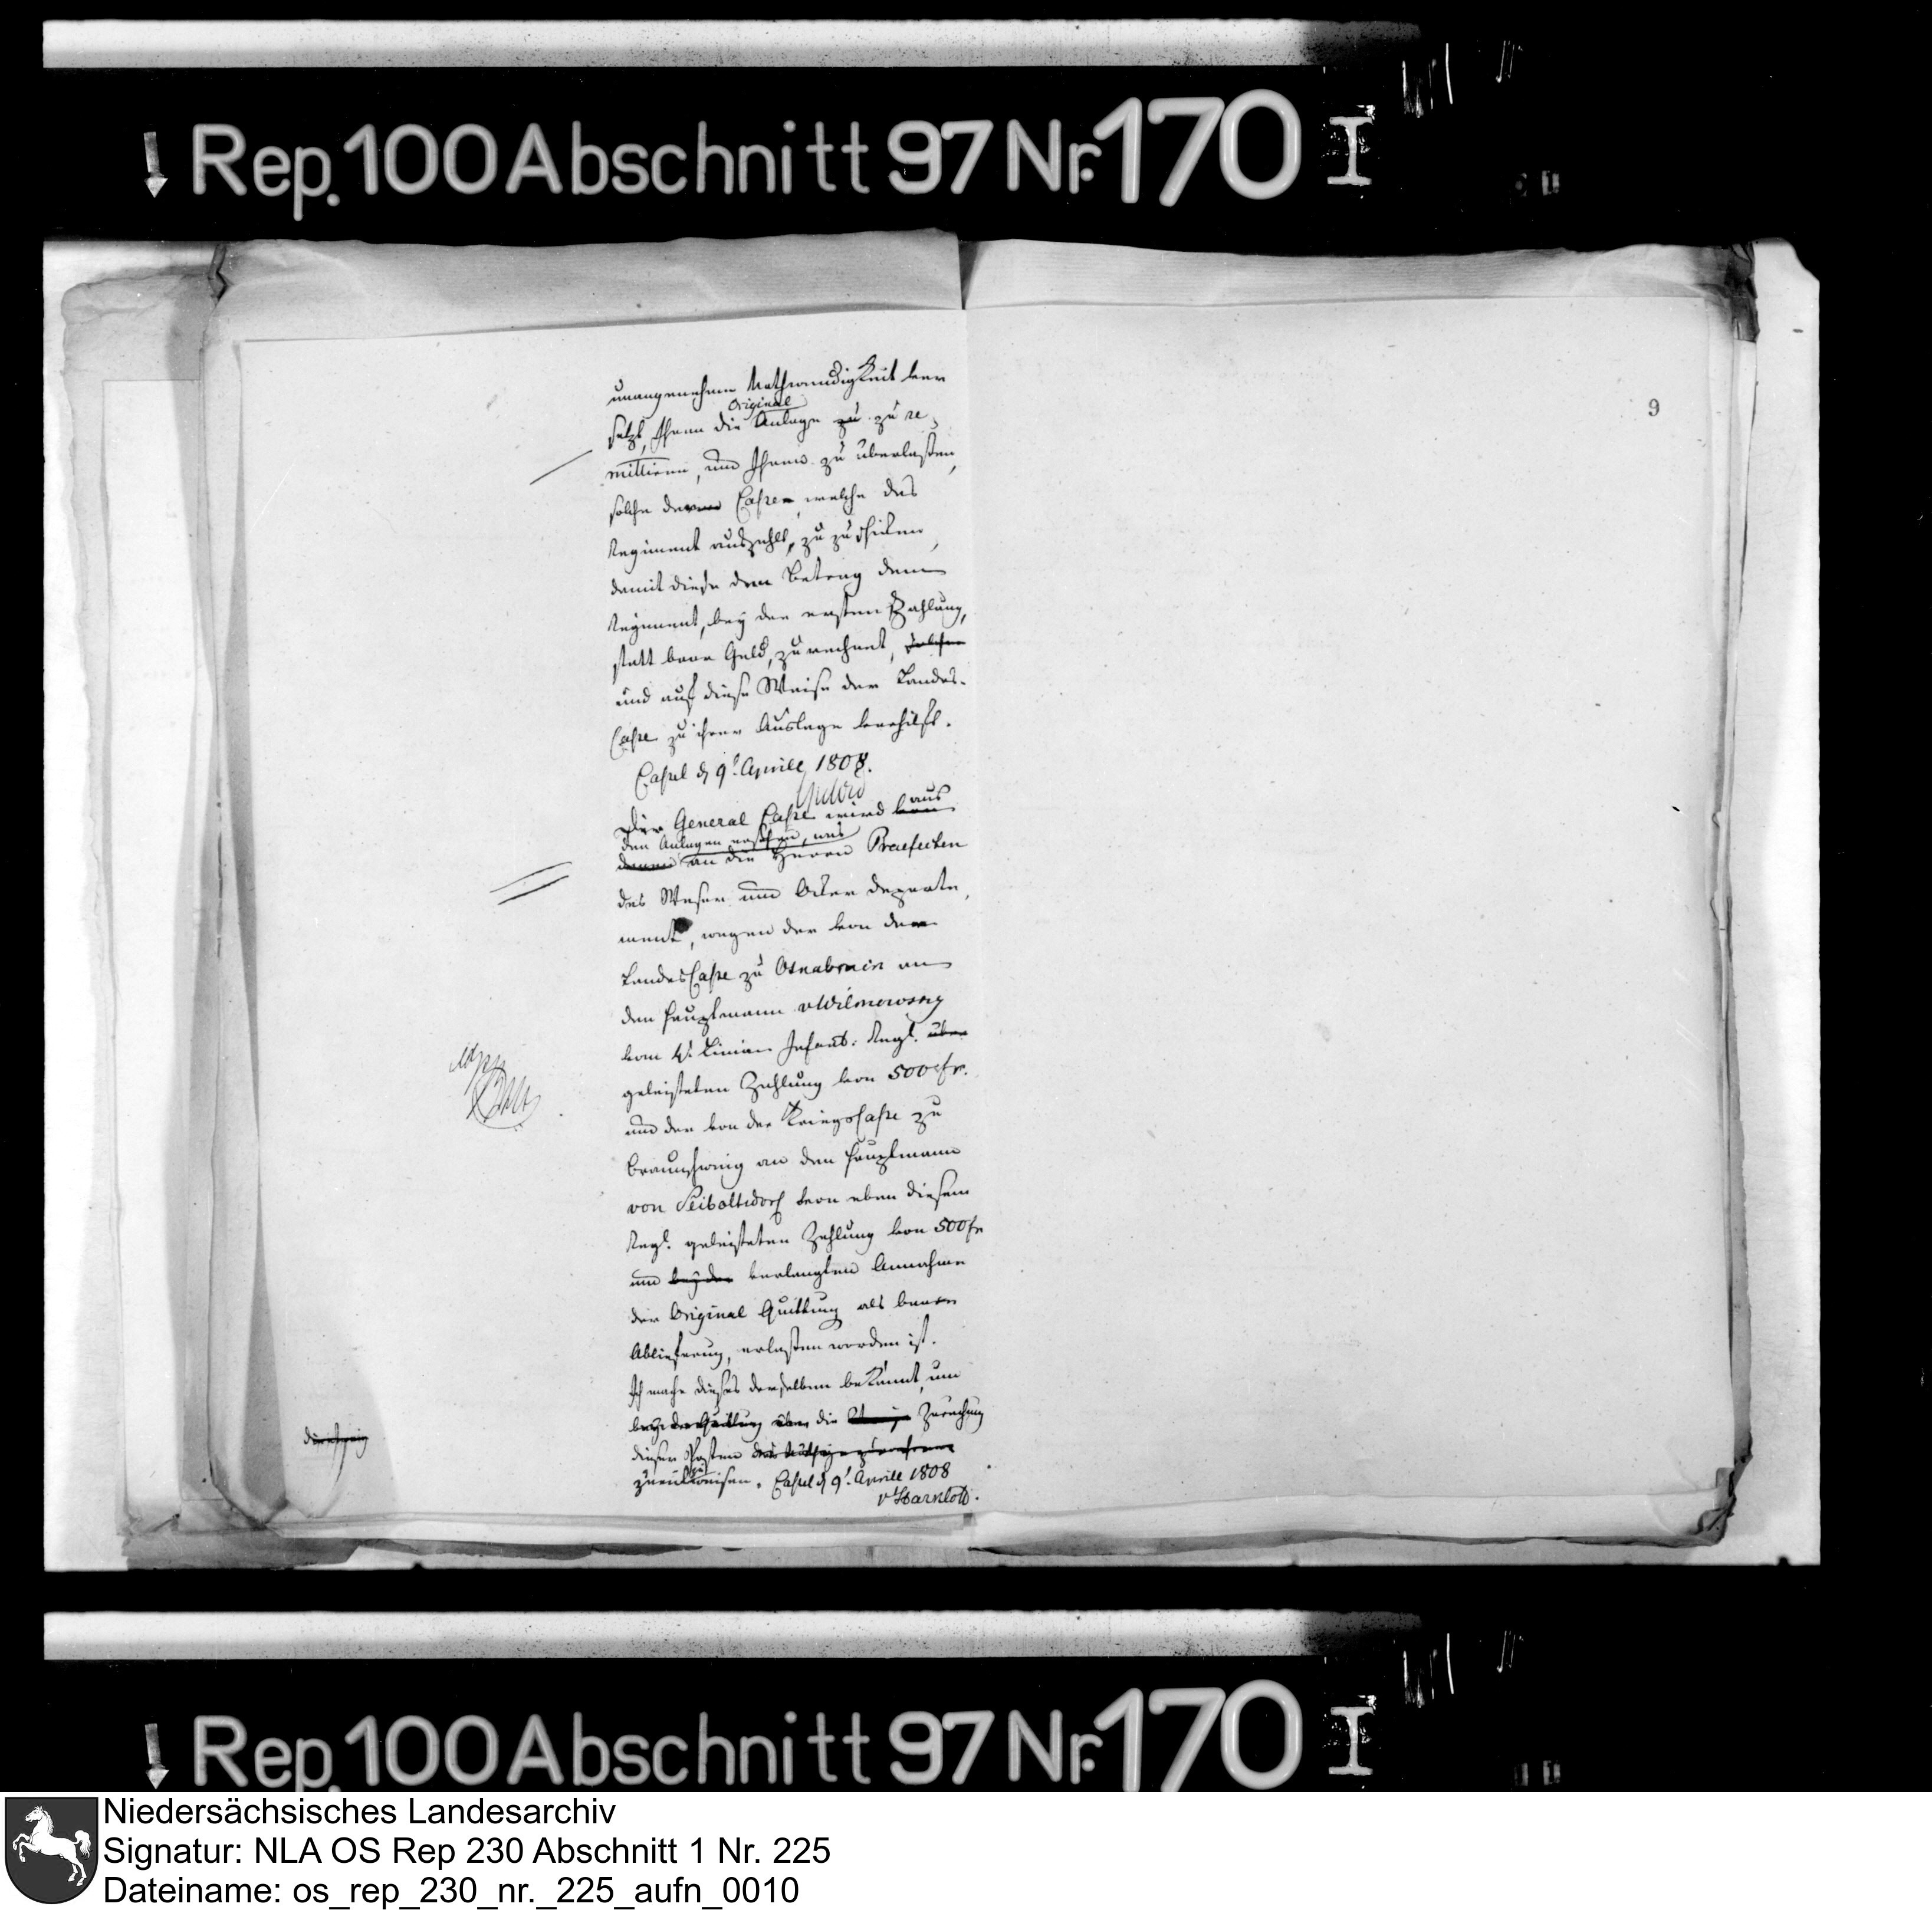 Rep. 100 Abschnitt 97 Nr. 170 I
9
unangenehme Nothwendigkeit ver
setzt, Ihnen die Original Anlage zu zu re
mittiren, und Ihnen zu überlaßen,
solche der Casse, welche das
Regiment auszahlt, zu zu schicken,
damit diese den Betrag dem
Regiment, bey der ersten Zahlung,
statt baar Geld, zurechnet,
und auf diese Weise der Landes-
Casse zu ihrer Auslage verhilft.
Cassel d 9t Aprill 1808.
Der General Casse wird aus
den Anlagen ersehen, was
an die Herrn Praefecten
des Weser und Ocker Departe
ment, wegen der von der
Landes Casse zu Osnabrück an
den Hauptmann v Wilmowsky
vom 4t Linien Infant: Regt.
geleisteten Zahlung von 500 fr.
und der von der Kriegs Casse zu
Braunschweig an den Hauptmann
von Seiboltsdorf von eben diesem
Regt. geleisteten Zahlung von 500 fr
und verlangten Annahme
der Original Quittung als baare
Ablieferung, erlaßen worden ist.
Ich mache dieses derselben bekannt, um
die Zurechnung
dieser Posten
zurückzuweisen. Cassel d 9t Aprill 1808
Rep. 100 Abschnitt 97 Nr. 170 I
Niedersächsisches Landesarchiv
Signatur: NLA OS Rep 230 Abschnitt 1 Nr. 225
Dateiname: os_rep_230_nr._225_aufn_0010